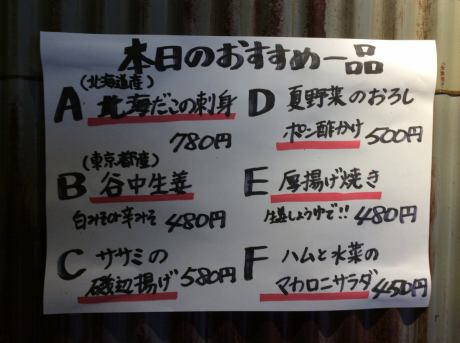 本日のおすすめ一品
(北海道産)
A 北海だこの刺身
780円
(東京都産)
B 谷中生姜
白みそor辛みそ 480円
C ササミの
磯辺揚げ 580円
D 夏野菜のおろし
ポン酢かけ 500円
E 厚揚げ焼き
生姜しょうゆで!! 480円
F ハムと水菜の
マカロニサラダ 450円